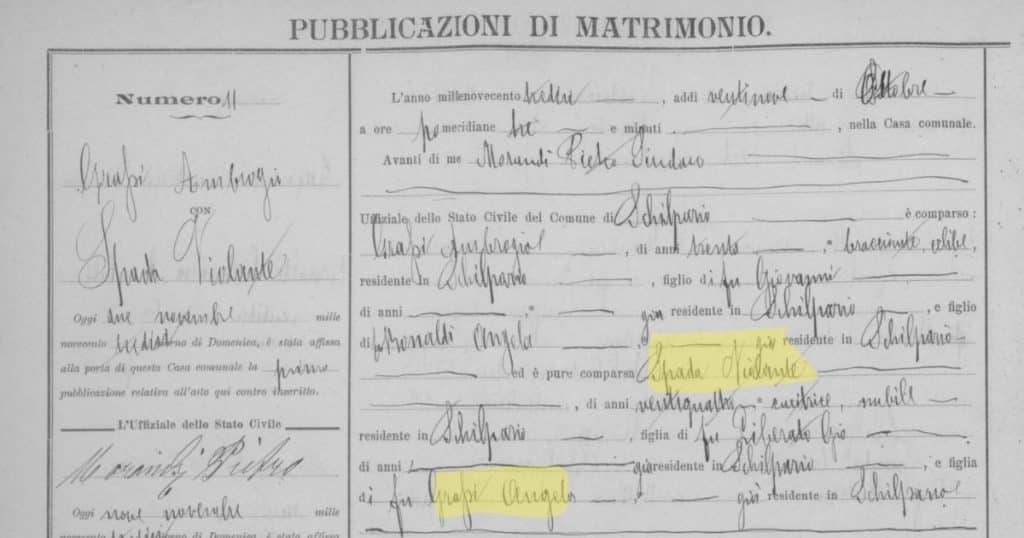 PUBBLICAZIONI DI MATRIMONIO.
Numero 11
Grassi Ambrogio
CON
Spada Violante
Oggi due novembre mille
novecento tredici giorno di Domenica, è stata affissa
alla porta di questa Casa comunale la prima
pubblicazione relativa all'atto qui contro inscritto.
L'Uffiziale dello Stato Civile
Morandi Pietro
Oggi nove novembre mille
novecento tredici giorno di Domenica, è stata affissa
L'anno millenovecento tredici, addì ventinove di Ottobre
a ore pomeridiane tre e minuti, nella Casa comunale.
Avanti di me Morandi Pietro Sindaco
Uffiziale dello Stato Civile del Comune di Schilpario è comparso:
Grassi Ambrogio, di anni trenta, bracciante, celibe,
residente in Schilpario, figlio di fu Giovanni
di anni già residente in Schilpario, e figlio
di fu Bonaldi Angela e già residente in Schilpario
ed è pure comparsa Spada Violante
, di anni ventiquattro cucitrice, nubile
residente in Schilpario, figlia di fu Liberato Gio
di anni già residente in Schilpario, e figlia
di fu Grassi Angela già residente in Schilpario